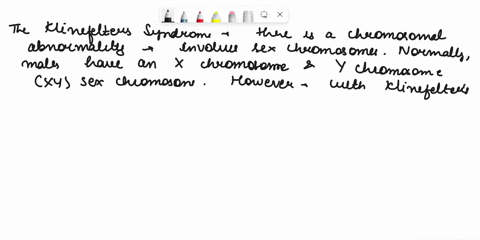 The Klinefelters Syndrome → there is a chromosomal
abnormality → involve sex chromosomes. Normally,
males have an X chromosome & Y chromosome
(XY) sex chromosome. However → with Klinefelter's